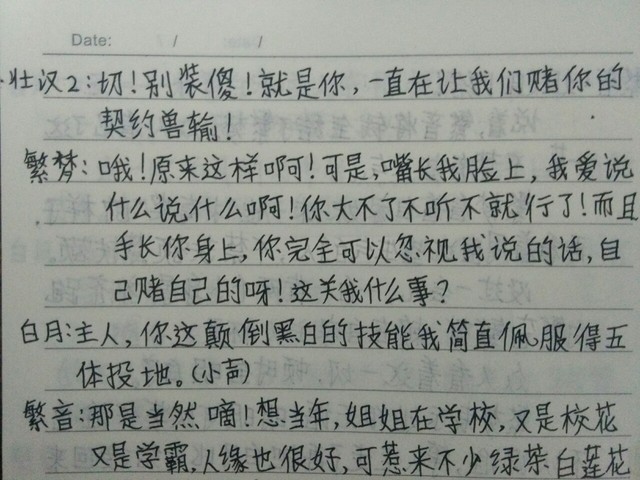 Date: / /
壮汉2:切!别装傻!就是你,一直在让我们赌你的
契约兽输!
繁梦:哦!原来这样啊!可是,嘴长我脸上,我爱说
什么说什么啊!你大不了不听不就行了!而且
手长你身上,你完全可以忽视我说的话,自
己赌自己的呀!这关我什么事?
白月:主人,你这颠倒黑白的技能我简直佩服得五
体投地。(小声)
繁音:那是当然嘀!想当年,姐姐在学校,又是校花
又是学霸,人缘也很好,可惹来不少绿茶白莲花